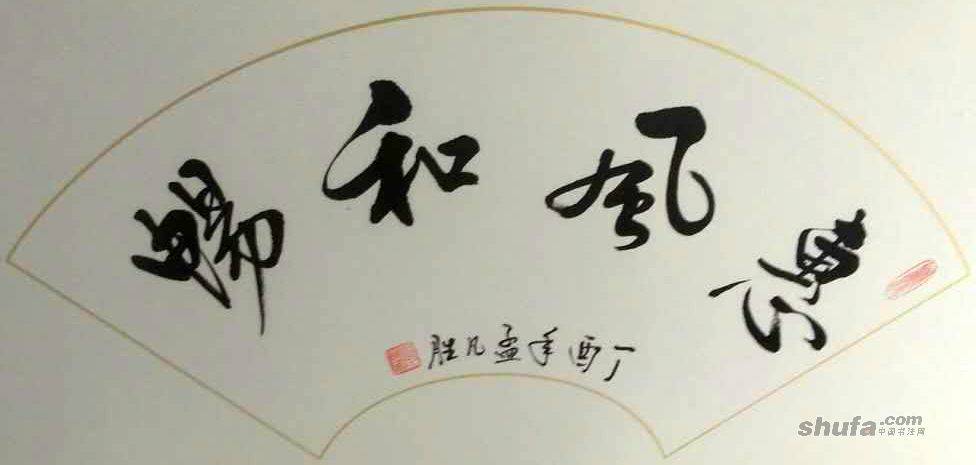 惠风和畅
丁酉年孟凡胜
shufa.com
中国书法网